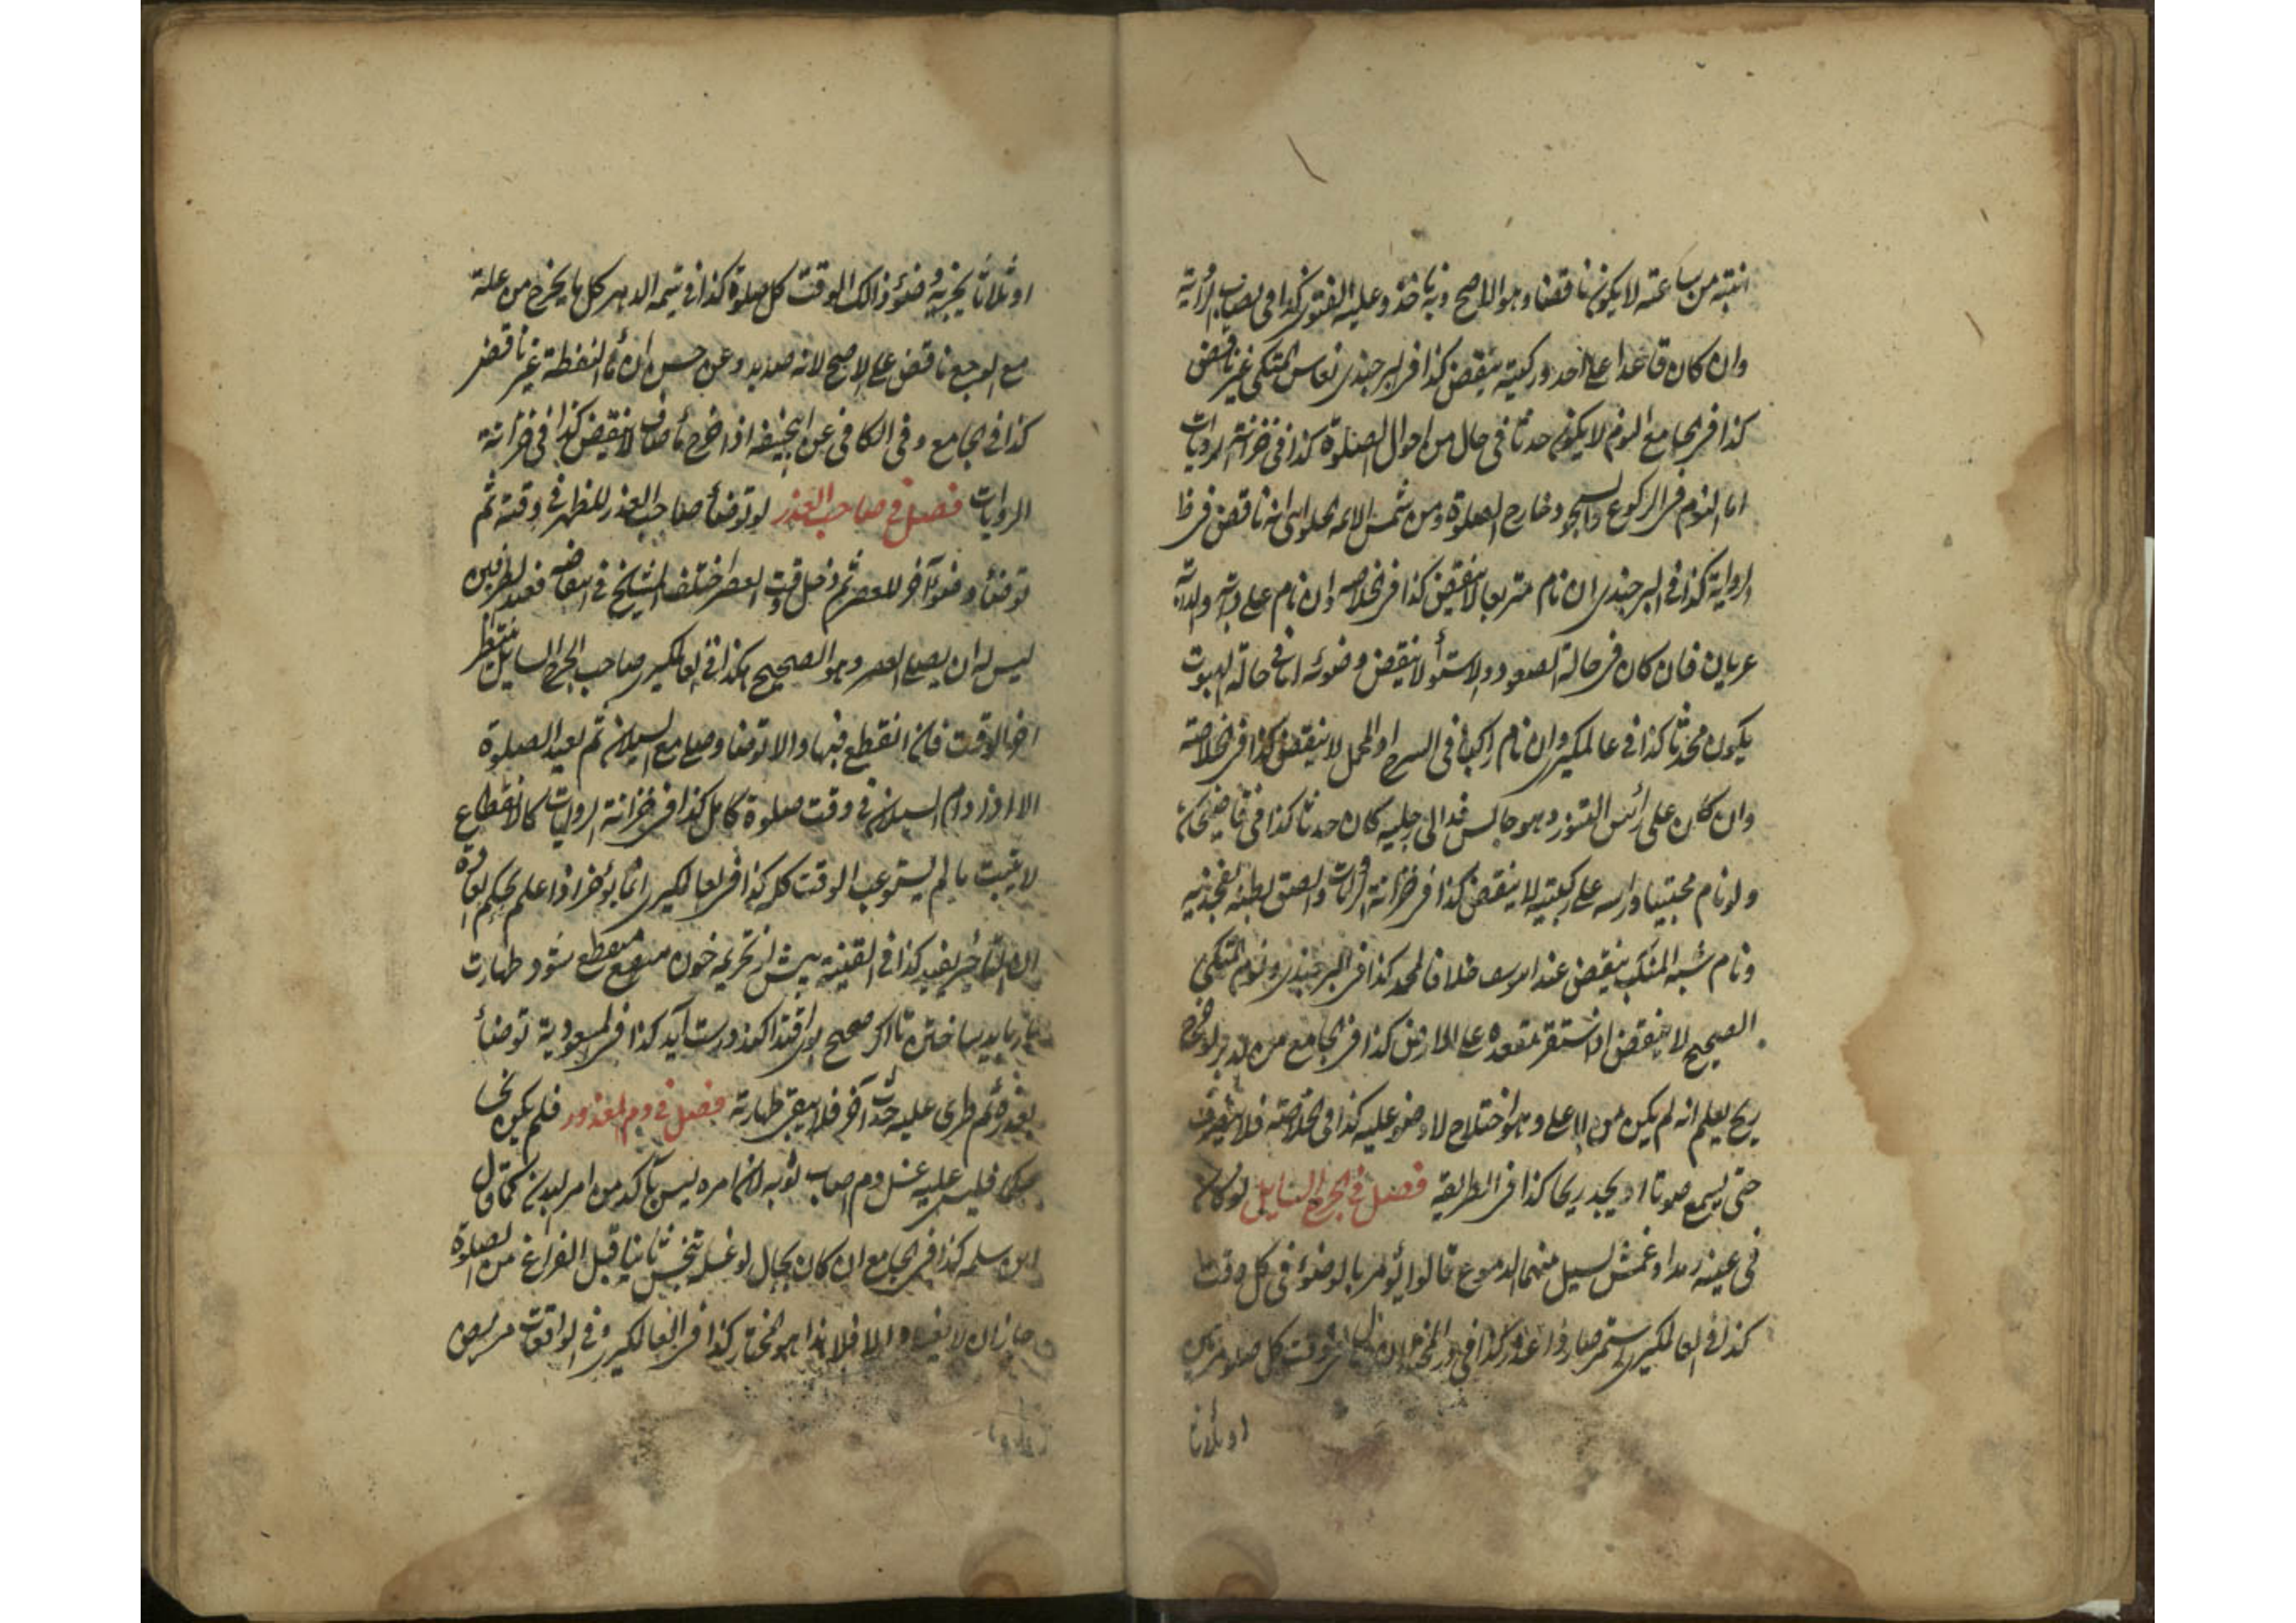 انتبه من ساعته لا يكون ناقضا وهو الاصح وبه ناخذ وعليه الفتوى كذا فى نصاب الرواية
وان كان قاعدا على احد وركيه ينقض كذا فى البرجندى نعاس المتكى غير ناقض
كذا فى الجامع النوم لا يكون حدثا فى حال من احوال الصلوة كذا فى خزانة الروايات
اما النوم فى الركوع والسجود خارج الصلوة ومن شمس الائمه الحلوانى انه ناقض فى ظا
الرواية كذا فى البرجندى ان نام متربعا لا ينقض كذا فى الخلاصه وان نام على دابته والدابة
عريان فان كان فى حالة الصعود والاستوأ لا ينقض وضوئه اما فى حالة الهبوت
يكون محدثا كذا فى عالمكيرى وان نام راكبا فى السرج او المحمل لا ينقض كذا فى الخلاصة
وان كان على رأس التنور وهو جالس قد ادلى رجليه كان حدثا كذا فى قاضيخان
ولو نام محتبيا وراسه على ركبتيه لا ينقض كذا فى خزانة الروايات والصق بطنه بفخذيه
ونام شبه المنكب ينقض عند ابو يوسف خلافا لمحمد كذا فى البرجندى ونوم المتكى
الصحيح لا ينقض اذا استقر مقعده على الارض كذا فى الجامع من الدبر لو خرج
ريح يعلم انه لم يكن من الاعلى وهو اختلاج لا وضو عليه كذا فى الخلاصة فلا ينصرف
حتى يسمع صوتا او يجد ريحا كذا فى الطريقه فصل فى الجرح السايل لو كان
فى عينه رمد او عمش تسيل منهما الدموع قالوا يؤمر بالوضوء فى كل وقت
كذا فى العالمكيرى يستمر صار ذا عذر كذا فى در المختار وقت كل صلوة مرتين
او ثلاثا
او ثلاثا يجزيه وضوء ذالك الوقت كل صلوة كذا فى تيمه الدهر كل ما يخرج من علة
مع الوجع ناقض على الاصح لانه صديد وعن حسن ان ماء النفطة غير ناقض
كذا فى الجامع وفى الكافى عن ابيحنيفه اذا خرج ماء صاف لا ينقض كذا فى خزانة
الروايات فصل فى صاحب العذر لو توضأ صاحب العذر للظهر فى وقته ثم
توضأ وضوءا آخر للعصر ثم دخل وقت العصر اختلف المشايخ فى انتقاضه فعند الطرفين
ليس له ان يصلى العصر وهو الصحيح هكذا فى العالمكيرى صاحب الجرح السايل ينتظر
اخر الوقت فان انقطع فبها والا توضأ وصلى مع السيلان ثم يعيد الصلوة
الا اذا دام السيلان فى وقت صلوة كامل كذا فى خزانة الروايات كالانقطاع
لا يثبت ما لم يستوعب الوقت كله كذا فى العالمكيرى انما يؤخر اذا علم بحكم العادة
ان التاخير يفيد كذا فى القنية پيش از تحريمه خون منقطع شود طهارت
بايد ساختن تا اكر صحيح بوى اقتدا كند درست آيد كذا فى المسعودية توضأ
بعذره ثم طرى عليه حدث آخر فلا يبقى طهارته فصل فى دم المعذور فلم يكن نجا
فليس عليه غسل دم اصاب ثوبه لان امره ليس بآكد من امر البدن كما قال
ابن سلمه كذا فى الجامع ان كان بحال لو غسله يتنجس ثانيا قبل الفراغ من الصلوة
جاز ان لا يغسله والا فلا هذا هو المختار كذا فى العالمكيرى وفى الواقعات مريض